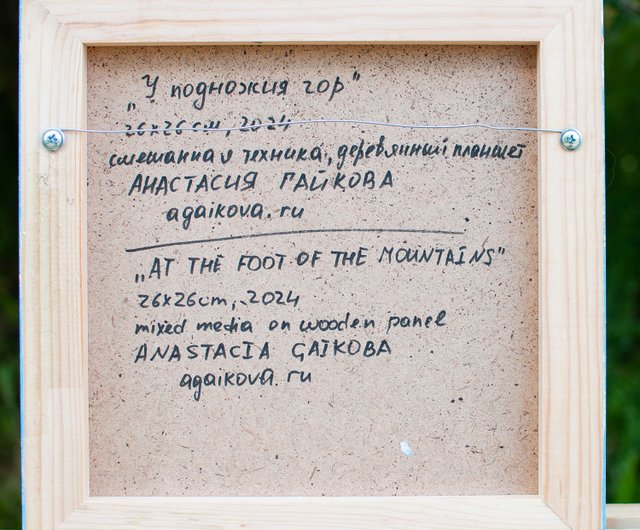 „У подножия гор"
26x26 см, 2024
смешанная техника, деревянный планшет
АНАСТАСИЯ ГАЙКОВА
agaikova.ru
„AT THE FOOT OF THE MOUNTAINS"
26x26cm, 2024
mixed media on wooden panel
ANASTACIA GAIKOVA
agaikova.ru